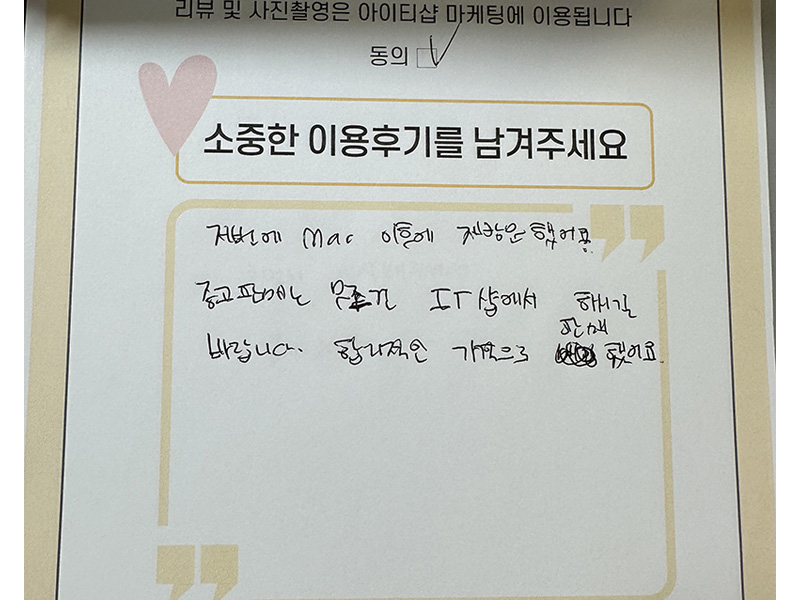 리뷰 및 사진촬영은 아이티샵 마케팅에 이용됩니다
동의
소중한 이용후기를 남겨주세요
저번에 Mac 이후에 재방문했어요
중고판매는 무조건 IT샵에서 하시길
바랍니다. 합리적인 가격으로 판매 했어요.